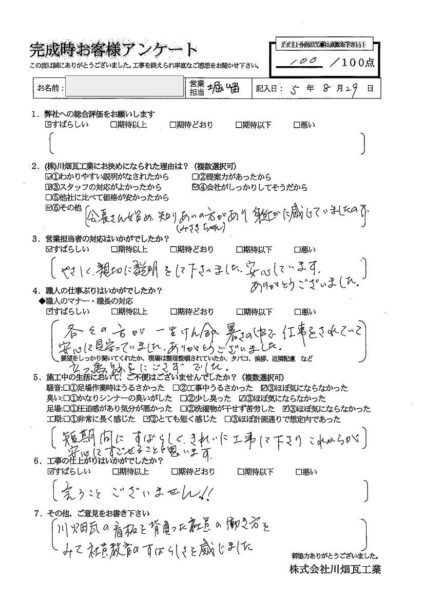 完成時お客様アンケート
この度は誠にありがとうございました。工事を終えられ率直なご感想をお聞かせ下さい。
100 /100点
お名前:
営業担当 堀畑 記入日: 5年 8月 29日
1. 弊社への総合評価をお願いします
☑すばらしい □期待以上 □期待どおり □期待以下 □悪い
2. (株)川畑瓦工業にお決めになられた理由は? (複数選択可)
☑①わかりやすい説明がなされたから □②提案力があったから
☑③スタッフの対応がよかったから ☑④会社がしっかりしてそうだから
□⑤他社に比べて価格が安かったから
☑⑥その他 (会長さん始め 知りあいの方があり 身近に感じていましたので
(みさきちゃん)
3. 営業担当者の対応はいかがでしたか?
☑すばらしい □期待以上 □期待どおり □期待以下 □悪い
やさしく、親切に説明をして下さいました。安心しています。
ありがとうございます。
4. 職人の仕事ぶりはいかがでしたか?
◆職人のマナー・職長の対応
☑すばらしい □期待以上 □期待どおり □期待以下 □悪い
各々の方が一生けん命 暑さの中で 仕事をされていて
安心に見守っていました。ありがとうございました。
要望をしっかり聞いてくれたか、現場は整理整頓されていたか、タバコ、挨拶、近隣配慮 など
5. 施工中の生活において、ご不便はございませんでしたか? (複数選択可)
騒音:□①足場作業時はうるさかった □②工事中うるさかった ☑③ほぼ気にならなかった
臭い:□①かなりシンナーの臭いがした □②少し臭った ☑③ほぼ気にならなかった
足場:□①圧迫感があり気分が悪かった □②洗濯物が干せず苦労した ☑③ほぼ気にならなかった
工期:□①非常に長く感じた ☑②とても短く感じた □③ほぼ計画通りで想定内であった
短期間に すばらしく、きれいに工事して下さり これからが
安心にすごせることを思います。
6. 工事の仕上がりはいかがでしたか?
☑すばらしい □期待以上 □期待どおり □期待以下 □悪い
言うこと ございません!!
7. その他、ご意見をお書き下さい
川畑瓦の看板を背負った社員の働き方を
みて社員教育のすばらしさを感じました
御協力ありがとうございました。
株式会社川畑瓦工業